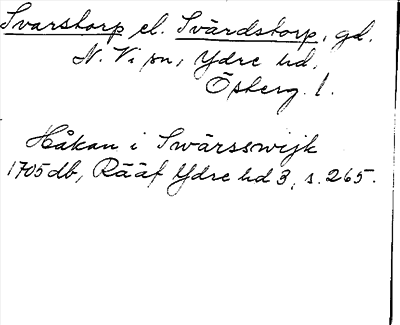 Svarstorp el. Svärdstorp, gd.
N. Vi sn, Ydre hd.
Östberg. l.
Håkan i Swärsswijk
1705 db, Rääf Ydre hd 3, s. 265.